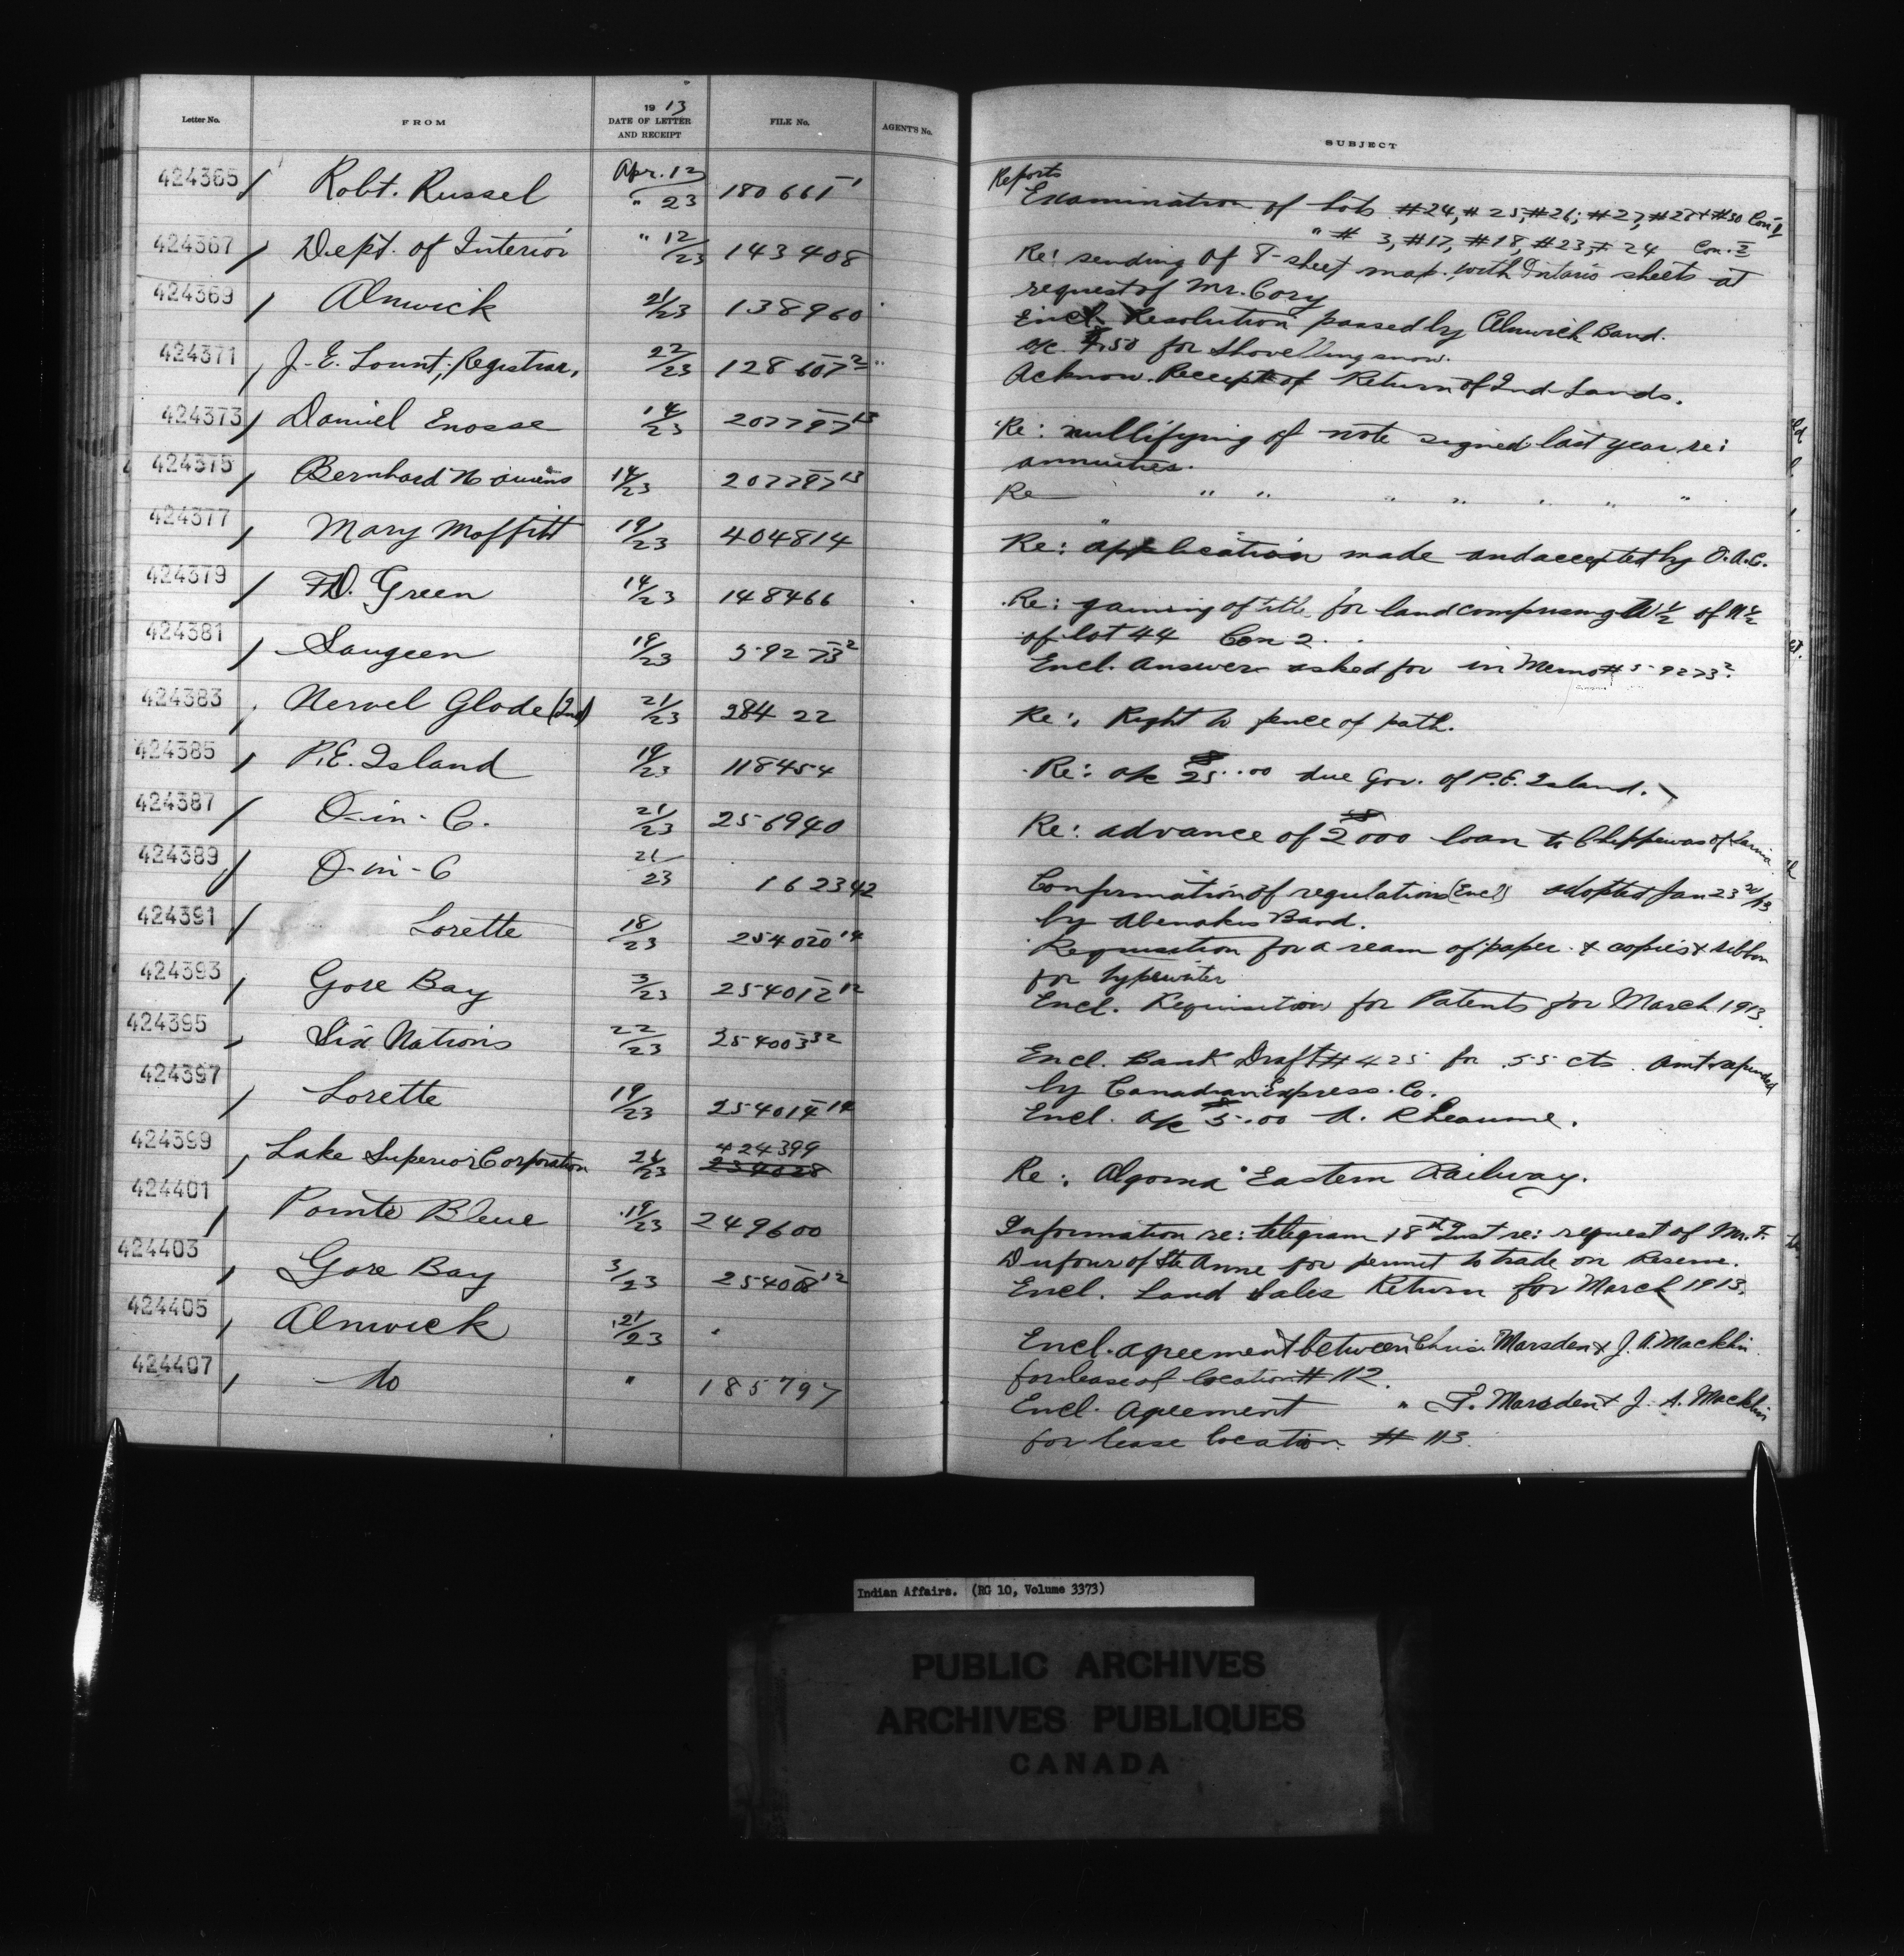 Letter No. FROM 1913 DATE OF LETTER AND RECEIPT FILE No. AGENT'S No. SUBJECT
424365 Robt. Russel Apr. 12/" 23 180661-1 Reports
Examination of Lots #24, #25, #26, #27, #28 + #30 Con I
" # 3, #17, #18, #23, # 24 Con. II
424367 Dept. of Interior " 12/23 143408 Re: sending of 8-sheet map, with Ontario sheets at
request of Mr. Cory
424369 Alnwick 21/23 138960 Encl. Resolution passed by Alnwick Band.
a/c $7.50 for shovelling snow.
424371 J. E. Lount, Registrar, 22/23 128607-2 Acknow. Receipt of Return of Ind Lands.
424373 Daniel Enosse 14/23 207797-13 Re: nullifying of note signed last year re:
annuities.
424375 Bernhard 14/23 207797-13 Re " " " " " " "
424377 Mary Moffitt 19/23 404814 Re: application made and accepted by O.A.C.
424379 F.D. Green 14/23 148466 Re: gaining of title for land comprising W½ of N½
of lot 44 Con 2.
424381 Saugeen 19/23 59273-2 Encl. Answer asked for in Memo # 59273-2
424383 Nervel Glode (Ind) 21/23 284 22 Re: Right to fence of path.
424385 P.E. Island 19/23 118454 Re: a/c $25.00 due Gov. of P.E. Island.
424387 O-in-C. 21/23 256940 Re: advance of $2000 loan to Chippewas of Sarnia
424389 O-in-C 21/23 162342 Confirmation of regulations (Encl) adopted Jan 23
by Abenakis Band.
424391 Lorette 18/23 254020-14 Requisition for a ream of paper & copies & ribbon
for typewriter
424393 Gore Bay 3/23 254012-12 Encl. Requisition for Patents for March 1913.
424395 Six Nations 22/23 254003-32 Encl. Bank Draft # 425 for .55 cts. Amt
by Canadian Express. Co.
424397 Lorette 19/23 254014-14 Encl. a/c $5.00 A. Rheaume.
424399 Lake Superior Corporation 21/23 424399 234028 Re: Algoma Eastern Railway.
424401 Pointe Bleue 19/23 249600 Information re: telegram 18th Inst re: request of Mr. F.
Dufour of Ste Anne for permit to trade on Reserve.
424403 Gore Bay 3/23 254008-12 Encl. Land Sales Return for March 1913.
424405 Alnwick 21/23 " Encl. agreement between Chris. Marsden & J. A. Macklin
for lease of location # 112.
424407 do " 185797 Encl. Agreement " F. Marsden & J. A. Macklin
for lease location # 113.
Indian Affairs. (RG 10, Volume 3373)
PUBLIC ARCHIVES
ARCHIVES PUBLIQUES
CANADA